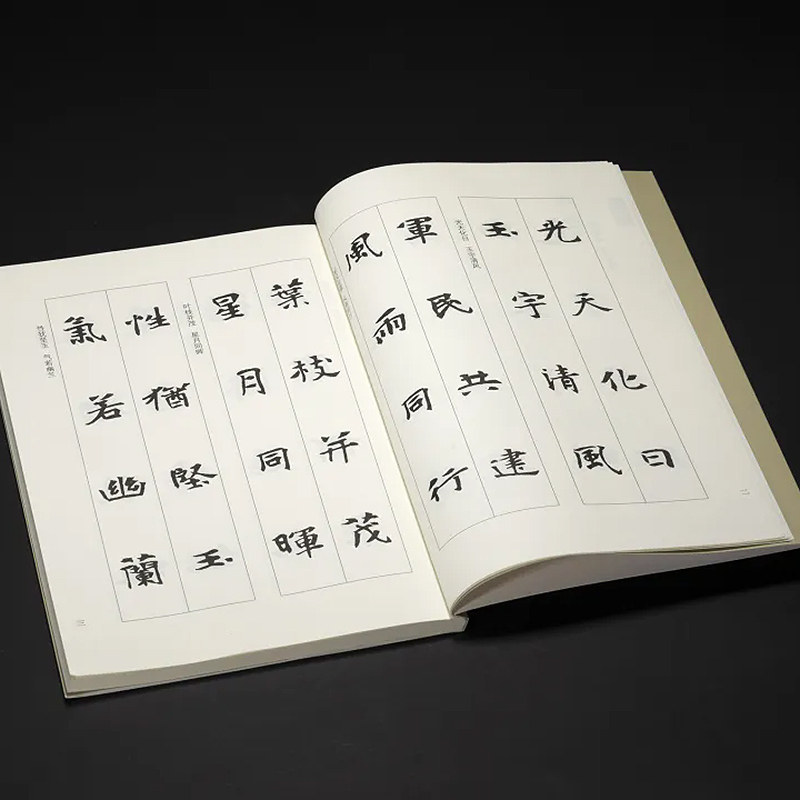 光天化日
玉宇清風
光天化日 玉宇清风
軍民共建
風雨同行
二
葉枝并茂
星月同暉
叶枝并茂 星月同晖
性猶堅玉
氣若幽蘭
性犹坚玉 气若幽兰
三